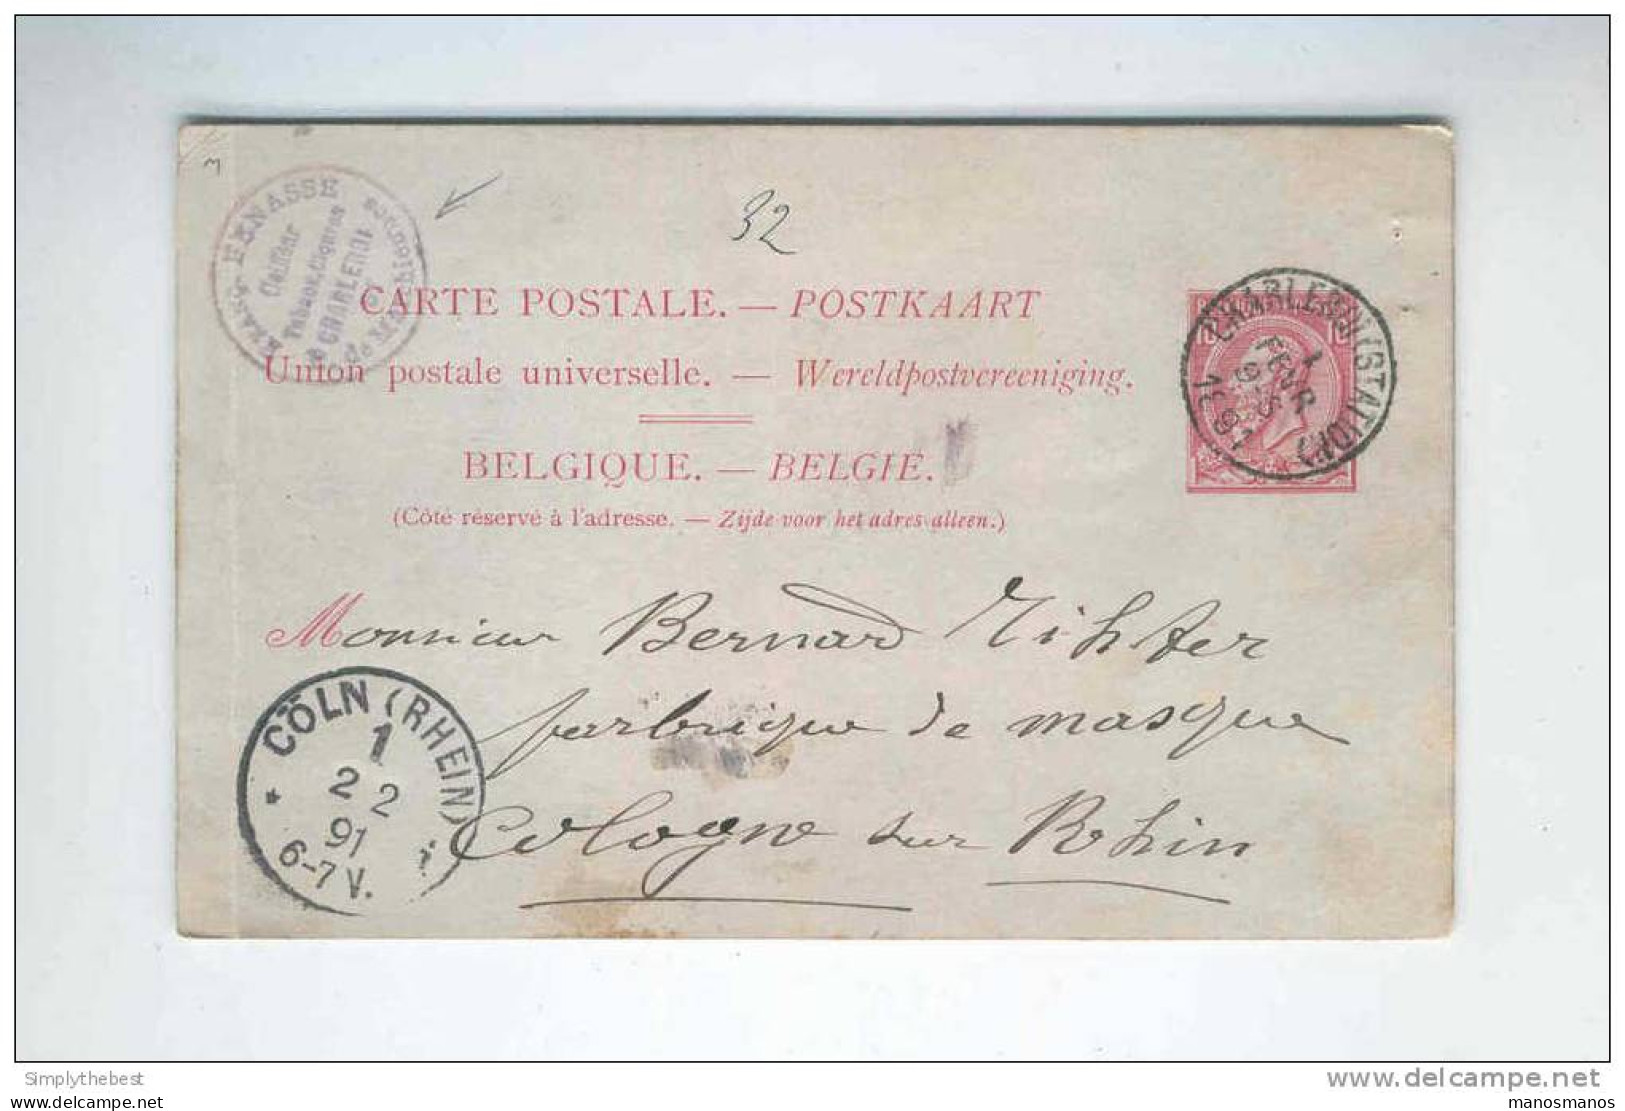 BENASSE
Coiffeur
Tabac & Cigares
CHARLEROI
32
CARTE POSTALE. — POSTKAART
Union postale universelle. — Wereldpostvereeniging.
BELGIQUE. — BELGIE.
(Côté réservé à l'adresse. — Zijde voor het adres alleen.)
CHARLEROI (STATION)
1
FEVR
9-S
1891
10 10
Monsieur Bernard Richter
farbrique de masque
Cologne sur Rhin
CÖLN (RHEIN)
1
2 2
91
6-7 V.
Simplythebest
www.delcampe.net
manosmanos